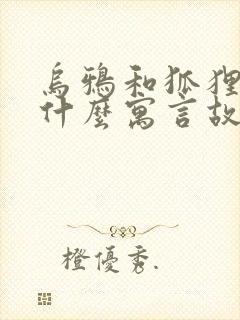 烏鴉和狐狸
什麼寓言故
橙優秀.